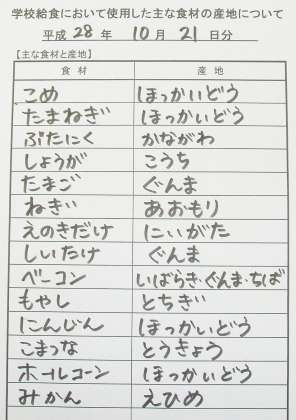 学校給食において使用した主な食材の産地について
平成 28 年 10 月 21 日分
【主な食材と産地】
食 材 産 地
こめ ほっかいどう
たまねぎ ほっかいどう
ぶたにく かながわ
しょうが こうち
たまご ぐんま
ねぎ あおもり
えのきだけ にいがた
しいたけ ぐんま
ベーコン いばらき・ぐんま・ちば
もやし とちぎ
にんじん ほっかいどう
こまつな とうきょう
ホールコーン ほっかいどう
みかん えひめ